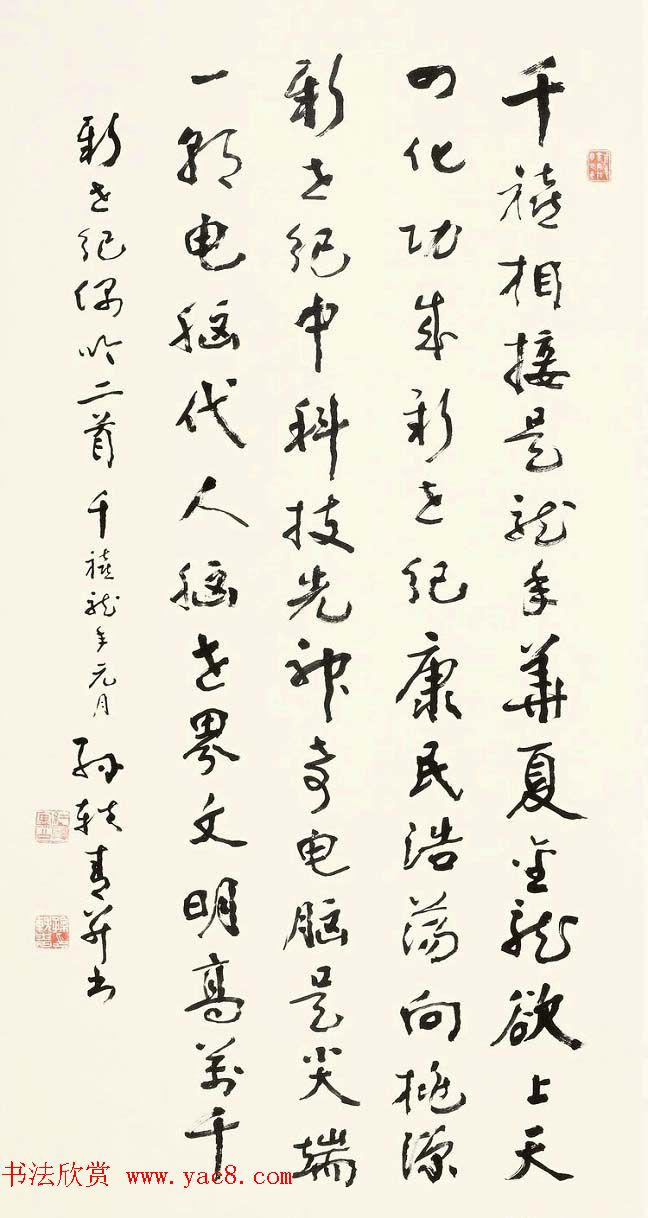 千禧相接是龙年华夏金龙欲上天
四化功成新世纪康民浩荡向桃源
新世纪中科技先神奇电脑是尖端
一朝电脑代人脑世界文明高万千
新世纪偶吟二首 千禧龙年元月 孙轶青并书
书法欣赏 www.yac8.com